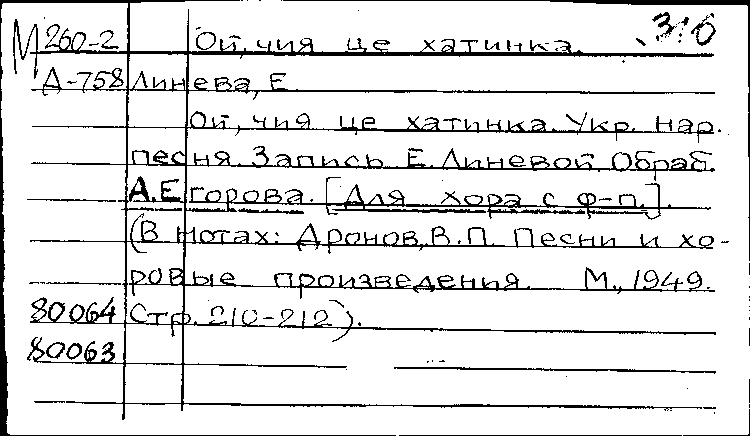 М 260-2 Ой, чия це хатинка. 316
Д-758 Линева, Е
Ой, чия це хатинка. Укр. нар.
песня. Запись Е. Линевой. Обраб.
А. Егорова. [Для хора с ф-п.].
(В нотах: Дронов, В.П. Песни и хо-
ровые произведения. М., 1949.
80064 Стр. 210-212).
80063